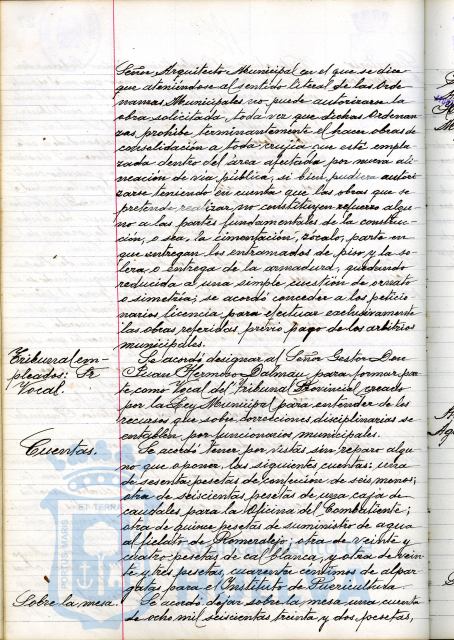 Señor Arquitecto Municipal en el que se dice
que ateniéndose al sentido literal de las Orde
nanzas Municipales no puede autorizarse la
obra solicitada, toda vez que dichas Ordenan
zas prohibe terminantemente el hacer obras de
consolidación a toda crujía que esté empla
zada dentro del área afectada por nueva ali
neación de vía pública, si bien pudiera autori
zarse teniendo en cuenta que las obras que se
pretende realizar, no constituyen refuerzo algu
no a las partes fundamentales de la construc
ción, o sea, la cimentación, zócalo, parte en
que entregan los entramados de piso y la so
lera o entrega de la armadura, quedando
reducida a una simple cuestión de ornato
o simetría; se acordó conceder a los peticio
narios licencia para efectuar exclusivamente
las obras referidas previo pago de los arbitrios
municipales.
Tribunal em-
pleados: Fr
Vocal.
Se acordó designar al Señor Gestor Don
Juan Dalmau, para formar par
te como Vocal del Tribunal Provincial creado
por la Ley Municipal para entender de los
recursos que sobre correcciones disciplinarias se
entablen por funcionarios municipales.
Cuentas.
Se acordó tener por vistas sin reparo algu
no que oponer, las siguientes cuentas: una
de sesenta pesetas de confección de seis monos;
otra de seiscientas pesetas de una caja de
caudales para la Oficina del Combatiente;
otra de quince pesetas de suministro de agua
al fielato de Romeralejo; otra de veinte y
cuatro pesetas de cal blanca, y otra de vein
te y tres pesetas, cuarenta céntimos de alpar
gatas para el Instituto de Puericultura.
Sobre la mesa.
Se acordó dejar sobre la mesa una cuenta
de ocho mil seiscientas treinta y dos pesetas,
ET TERRA
PORTUS MARIS